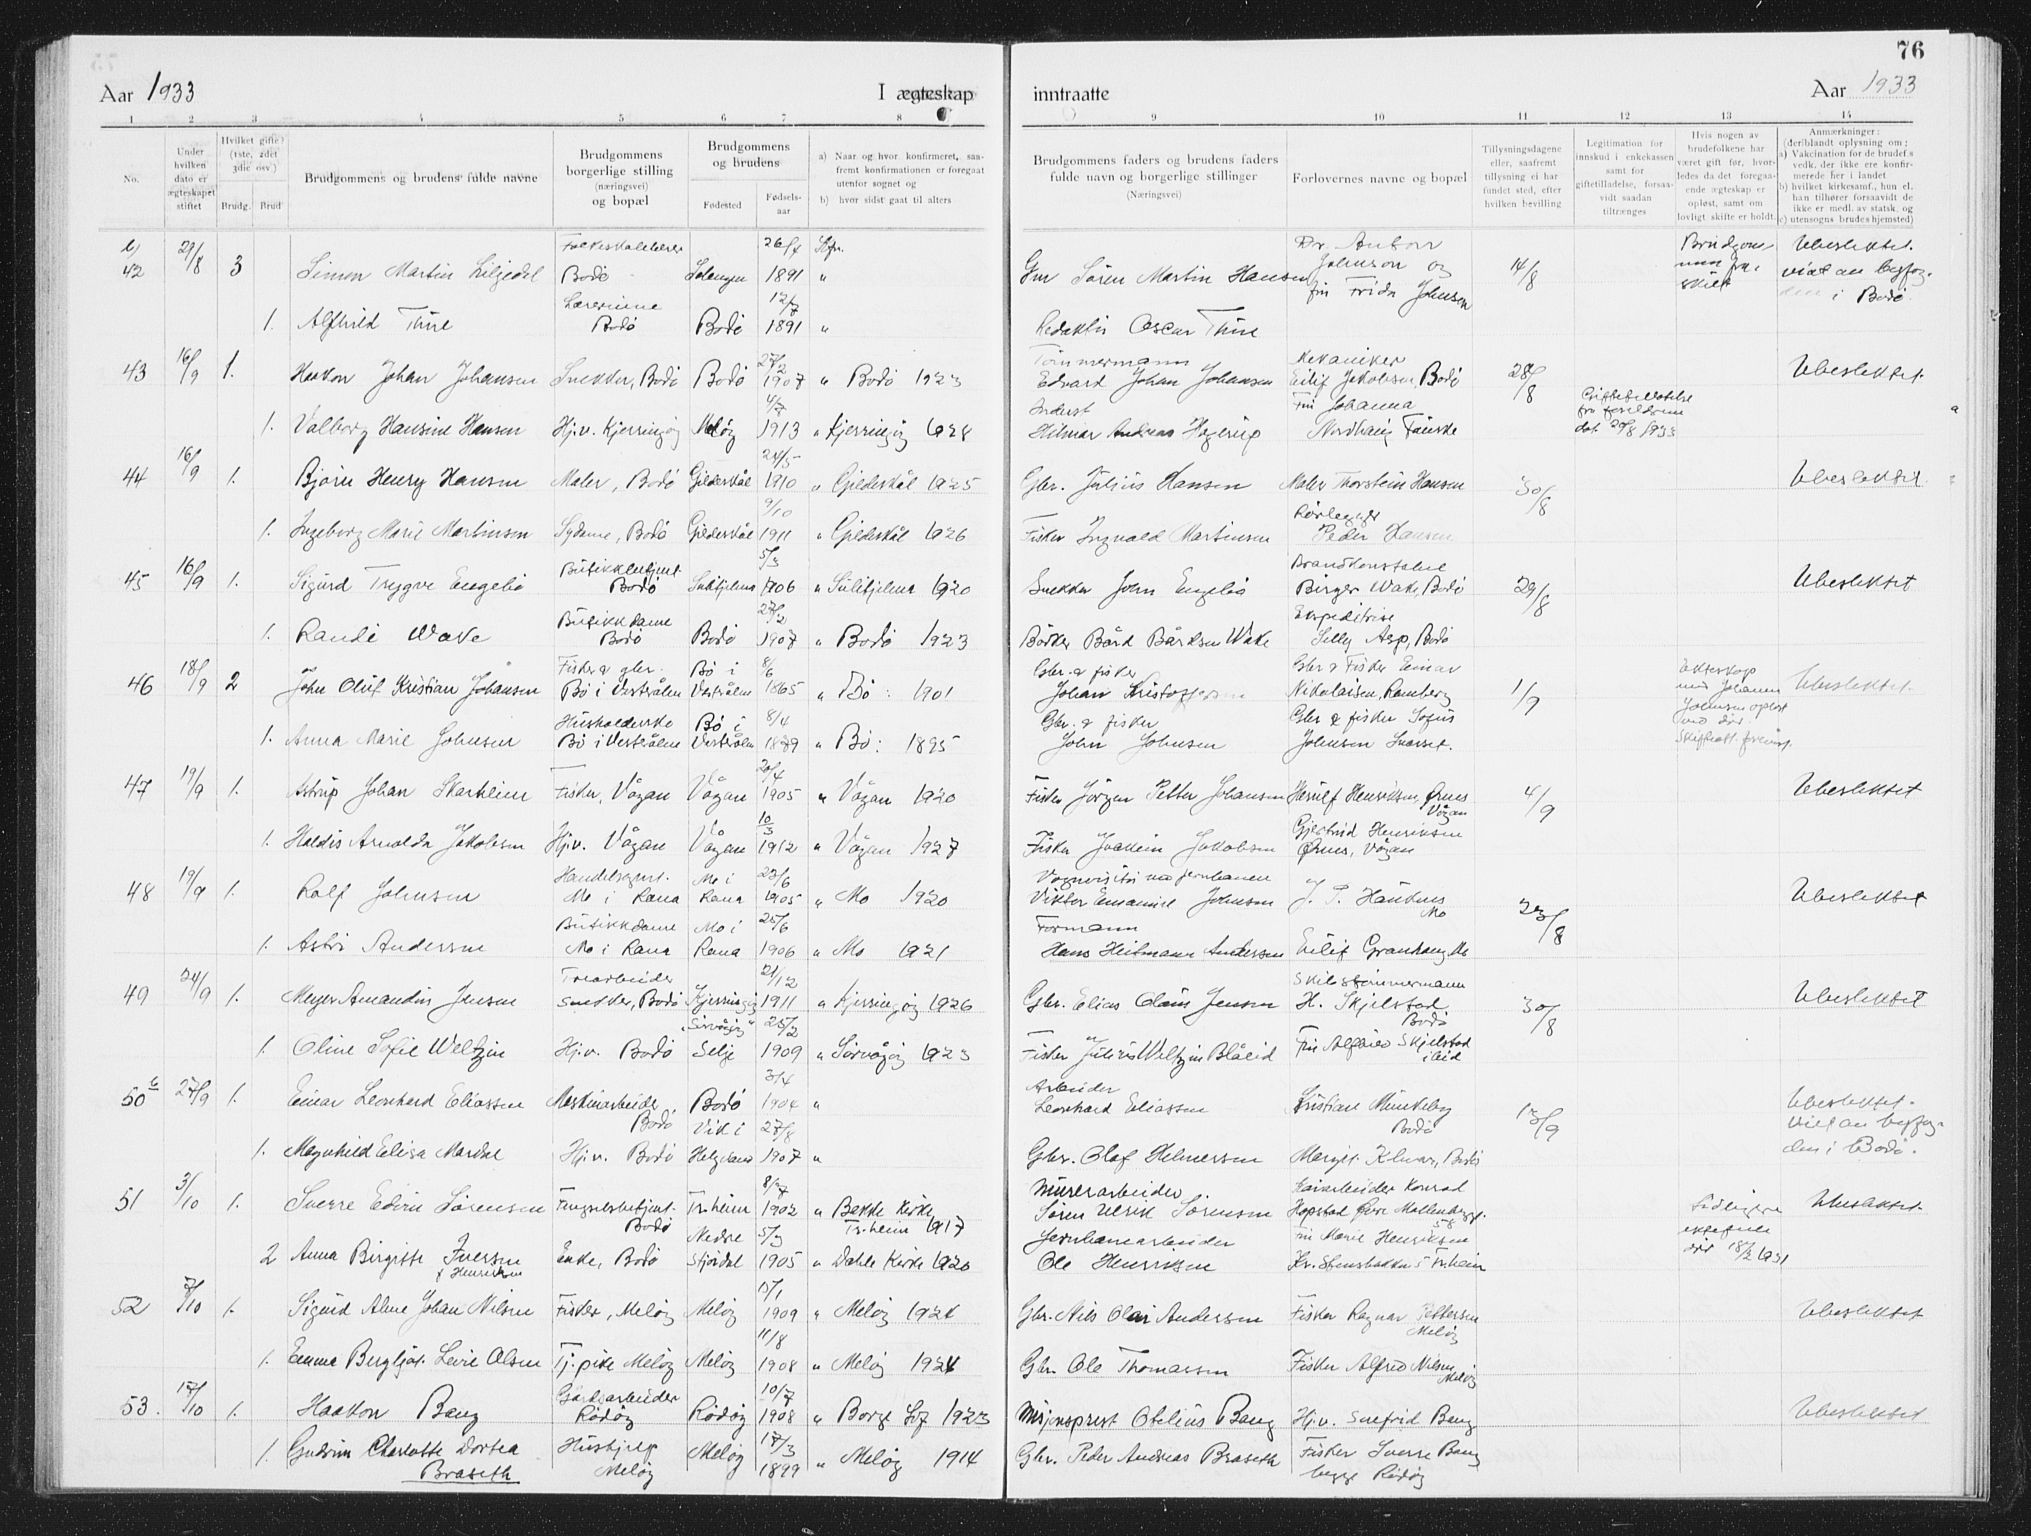 76
Aar 1933
I ægteskap
inntraatte
Aar 1933
1 2 3 4 5 6 7 8
9 10 11 12 13 14
No.
Under hvilken dato er ægteskapet stiftet
Hvilket gifte? (1ste, 2det 3die osv.)
Brudg. Brud
Brudgommens og brudens fulde navne
Brudgommens borgerlige stilling (næringsvei) og bopæl
Brudgommens og brudens
Fødested
Fødsels-aar
a) Naar og hvor konfirmeret, saa-fremt konfirmationen er foregaat utenfor sognet og
b) hvor sidst gaat til alters
Brudgommens faders og brudens faders fulde navn og borgerlige stillinger
(Næringsvei)
Forlovernes navne og bopæl
Tillysningsdagene eller, saafremt tillysning ei har fundet sted, efter hvilken bevilling
Legitimation for innskud i enkekassen samt for giftetilladelse, forsaa-vidt saadan tiltrænges
Hvis nogen av brudefolkene har været gift før, hvor-ledes da det foregaa-ende ægteskap er opløst, samt om lovligt skifte er holdt.
Anmærkninger: (deriblandt oplysning om:
a) Vakcination for de brudef.s vedk. der ikke ere konfir-merede her i landet
b) hvilket kirkesamf., hun el. han tilhører forsaavidt de ikke er medl. av statsk. og
c) utensogns brudes hjemsted)
b/
42 29/8 3 Simon Martin Liljedal Bodø 26/4 1891 Gm Sören Martin Hansen Dr. Anton Johnson og fru Frida Johnson 14/8 Ubeslektet. viet av byfog. i Bodø.
1. Alfhild Thue Lærerinne Bodø Bodø 12/7 1891 " Redaktör Oscar Thue
43 16/9 1. Haakon Johan Johansen Snekker, Bodø Bodø 27/2 1907 " Bodø 1923 Tømmermann Edvard Johan Johansen Mekaniker Eilif Jakobsen, Bodø 28/8 Ubeslektet.
1. Valborg Hansine Hansen Hj.v. Kjerringøy Meløy 4/7 1913 " Kjerringøy 1928 Hilmar Andreas Hagerup Fru Johanna Nordhaug Fauske dat. 20/8 1933
44 16/9 1. Bjarne Henry Hansen Maler, Bodø Gildeskål 24/5 1910 " Gildeskål 1925 Gbr. Julius Hansen Maler Thorstein Hansen 30/8 Ubeslektet.
1. Ingeborg Marie Martinsen Sydame, Bodø Gildeskål 9/10 1911 " Gildeskål 1926 Fisker Ingvald Martinsen Rörlegger Peder Hansen
45 16/9 1. Sigurd Trygve Engelia Butikkbetjent Bodø Sulitjelma 5/3 1906 " Sulitjelma 1920 Snekker John Engelia Brandkonstabel Birger Wake, Bodø 29/8 Ubeslektet
1. Randi Wake Butikkdame Bodø Bodø 27/2 1907 " Bodø 1923 Bøkker Bård Bårdsen Wake Ekspeditrise Selly Asp, Bodø
46 18/9 2 John Oluf Kristian Johansen Fisker & gbr. Bø i Vesterålen Bø i Vesterålen 8/6 1865 " Bø: 1901 Gbr. & fisker Johan Kristoffersen Gbr & Fisker Einar Nikolaisen, Ramberg 1/9 Ekteskap med Johanna Johnsen oplöst ved död. Ubeslektet.
1. Anna Marie Johnsen Husholderske Bø i Vesterålen Bø i Vesterålen 8/4 1879 " Bø: 1895 Gbr. & fisker John Johnsen Gbr & fisker Sofus Johnsen
47 19/9 1. Astrup Johan Skarheim Fisker, Vågan Vågan 20/4 1905 " Vågan 1920 Fisker Jörgen Petter Johansen Herulf Henriksen, Ørnes Vågan 4/9 Ubeslektet
1. Haldis Arnolda Jakobsen Hj.v. Vågan Vågan 10/3 1912 " Vågan 1927 Fisker Joakim Jakobsen Gjertrud Henriksen Ørnes, Vågan
48 19/9 1. Rolf Johnsen Handelsagent. Mo i Rana Mo i Rana 23/6 1905 " Mo 1920 Vognvisitör ved jernbanen Viktor Emanuel Johnsen J. P. Hauknes Mo 23/8 Ubeslektet
1. Astri Andersen Butikkdame Mo i Rana Mo i Rana 25/6 1906 " Mo 1921 Formann Hans Heitmann Andersen Eilif Granhaug, Mo
49 24/9 1. Meyer Amandus Jensen Trearbeider snekker, Bodø Kjerringøy 21/12 1911 " Kjerringøy 1926 Gbr. Elias Olaus Jensen Skibstømmermann H. Skjelstad Bodø 30/8 Ubeslektet
1. Oline Sofie Weltzin Hj.v. Bodø Selje 25/2 1909 " Sörvågøy 1923 Fisker Julius Weltzin Blåeid Fru Alfhild Skjelstad ibid
50 b 27/9 1. Einar Leonhard Eliassen Maskinarbeider Bodø Bodø 3/4 1904 " Arbeider Leonhard Eliassen Kristian Munkeby Bodø 13/9 Ubeslektet. Viet av byfog-den i Bodø.
1. Magnhild Elisa Mardal Hj.v. Bodø Vik i Helgeland 27/8 1907 " Gbr. Olaf Helmersen Margit Klusor, Bodø
51 3/10 1. Sverre Edvin Sörensen Fengselsbetjent. Bodø Tr.heim 8/7 1902 " Bakke Kirke Tr.heim 1917 Murerarbeider Sören Ulrik Sörensen Kaiarbeider Konrad Hopstad Øvre Mollenbergg. 58 Tidligere ektefelle död 18/2 1931 Ubeslektet.
2 Anna Birgitte Iversen f. Henriksen Enke, Bodø Nedre Stjördal 5/3 1905 " Dahle Kirke 1920 Jernbanearbeider Ole Henriksen Fru Marie Henriksen Kr. Stensbakken 5 Tr.heim
52 7/10 1. Sigurd Alme Johan Nilsen Fisker, Meløy Meløy 15/1 1909 " Meløy 1924 Gbr. Nils Olai Andersen Fisker Ragnar Pettersen Meløy Ubeslektet
1. Emma Bergljot Levie Olsen Tj.pike Meløy Meløy 11/8 1908 " Meløy 1924 Gbr. Ole Thomassen Fisker Alfred Nilsen Meløy
53. 17/10 1. Haakon Bang Gårdsarbeider Rødøy Rødøy 10/7 1908 " Borge Lof 1923 Misjonsprest Otelius Bang Hj.v. Snefrid Bang Ubeslektet
1. Gudrun Charlotte Dortea Braseth Hushjelp Meløy Meløy 17/3 1899 " Meløy 1914 Gbr. Peder Andreas Braseth Fisker Sverre Bang begge Rødøy